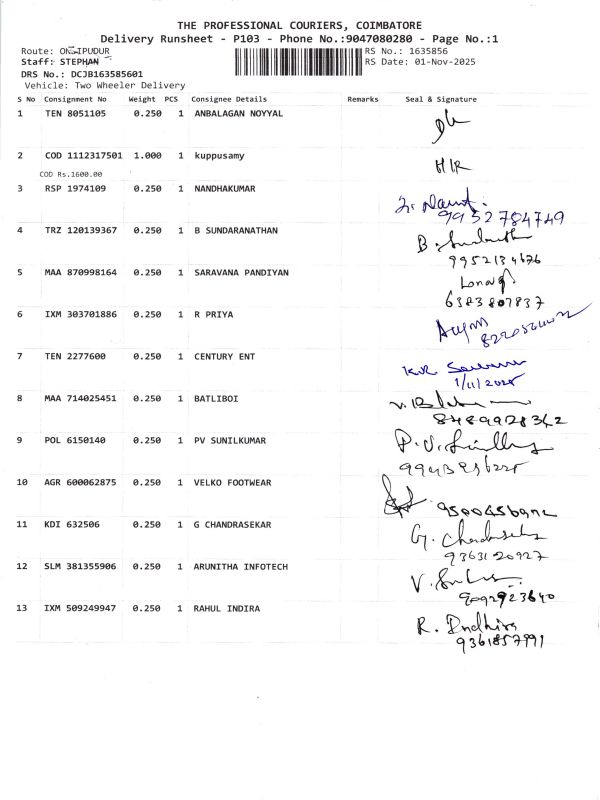 THE PROFESSIONAL COURIERS, COIMBATORE
Delivery Runsheet - P103 - Phone No.:9047080280 - Page No.:1
Route: ONDIPUDUR RS No.: 1635856
Staff: STEPHAN RS Date: 01-Nov-2025
DRS No.: DCJB163585601
Vehicle: Two Wheeler Delivery
S No Consignment No Weight PCS Consignee Details Remarks Seal & Signature
1 TEN 8051105 0.250 1 ANBALAGAN NOYYAL
2 COD 1112317501 1.000 1 kuppusamy
COD Rs.1600.00
3 RSP 1974109 0.250 1 NANDHAKUMAR
9952784749
4 TRZ 120139367 0.250 1 B SUNDARANATHAN B.
9952134676
5 MAA 870998164 0.250 1 SARAVANA PANDIYAN
6383807837
6 IXM 303701886 0.250 1 R PRIYA
7 TEN 2277600 0.250 1 CENTURY ENT
1/11/2025
8 MAA 714025451 0.250 1 BATLIBOI
8489928342
9 POL 6150140 0.250 1 PV SUNILKUMAR P.V.
10 AGR 600062875 0.250 1 VELKO FOOTWEAR
11 KDI 632506 0.250 1 G CHANDRASEKAR G.
9363120927
12 SLM 381355906 0.250 1 ARUNITHA INFOTECH V.
9092923640
13 IXM 509249947 0.250 1 RAHUL INDIRA R. Indhira
9361857991